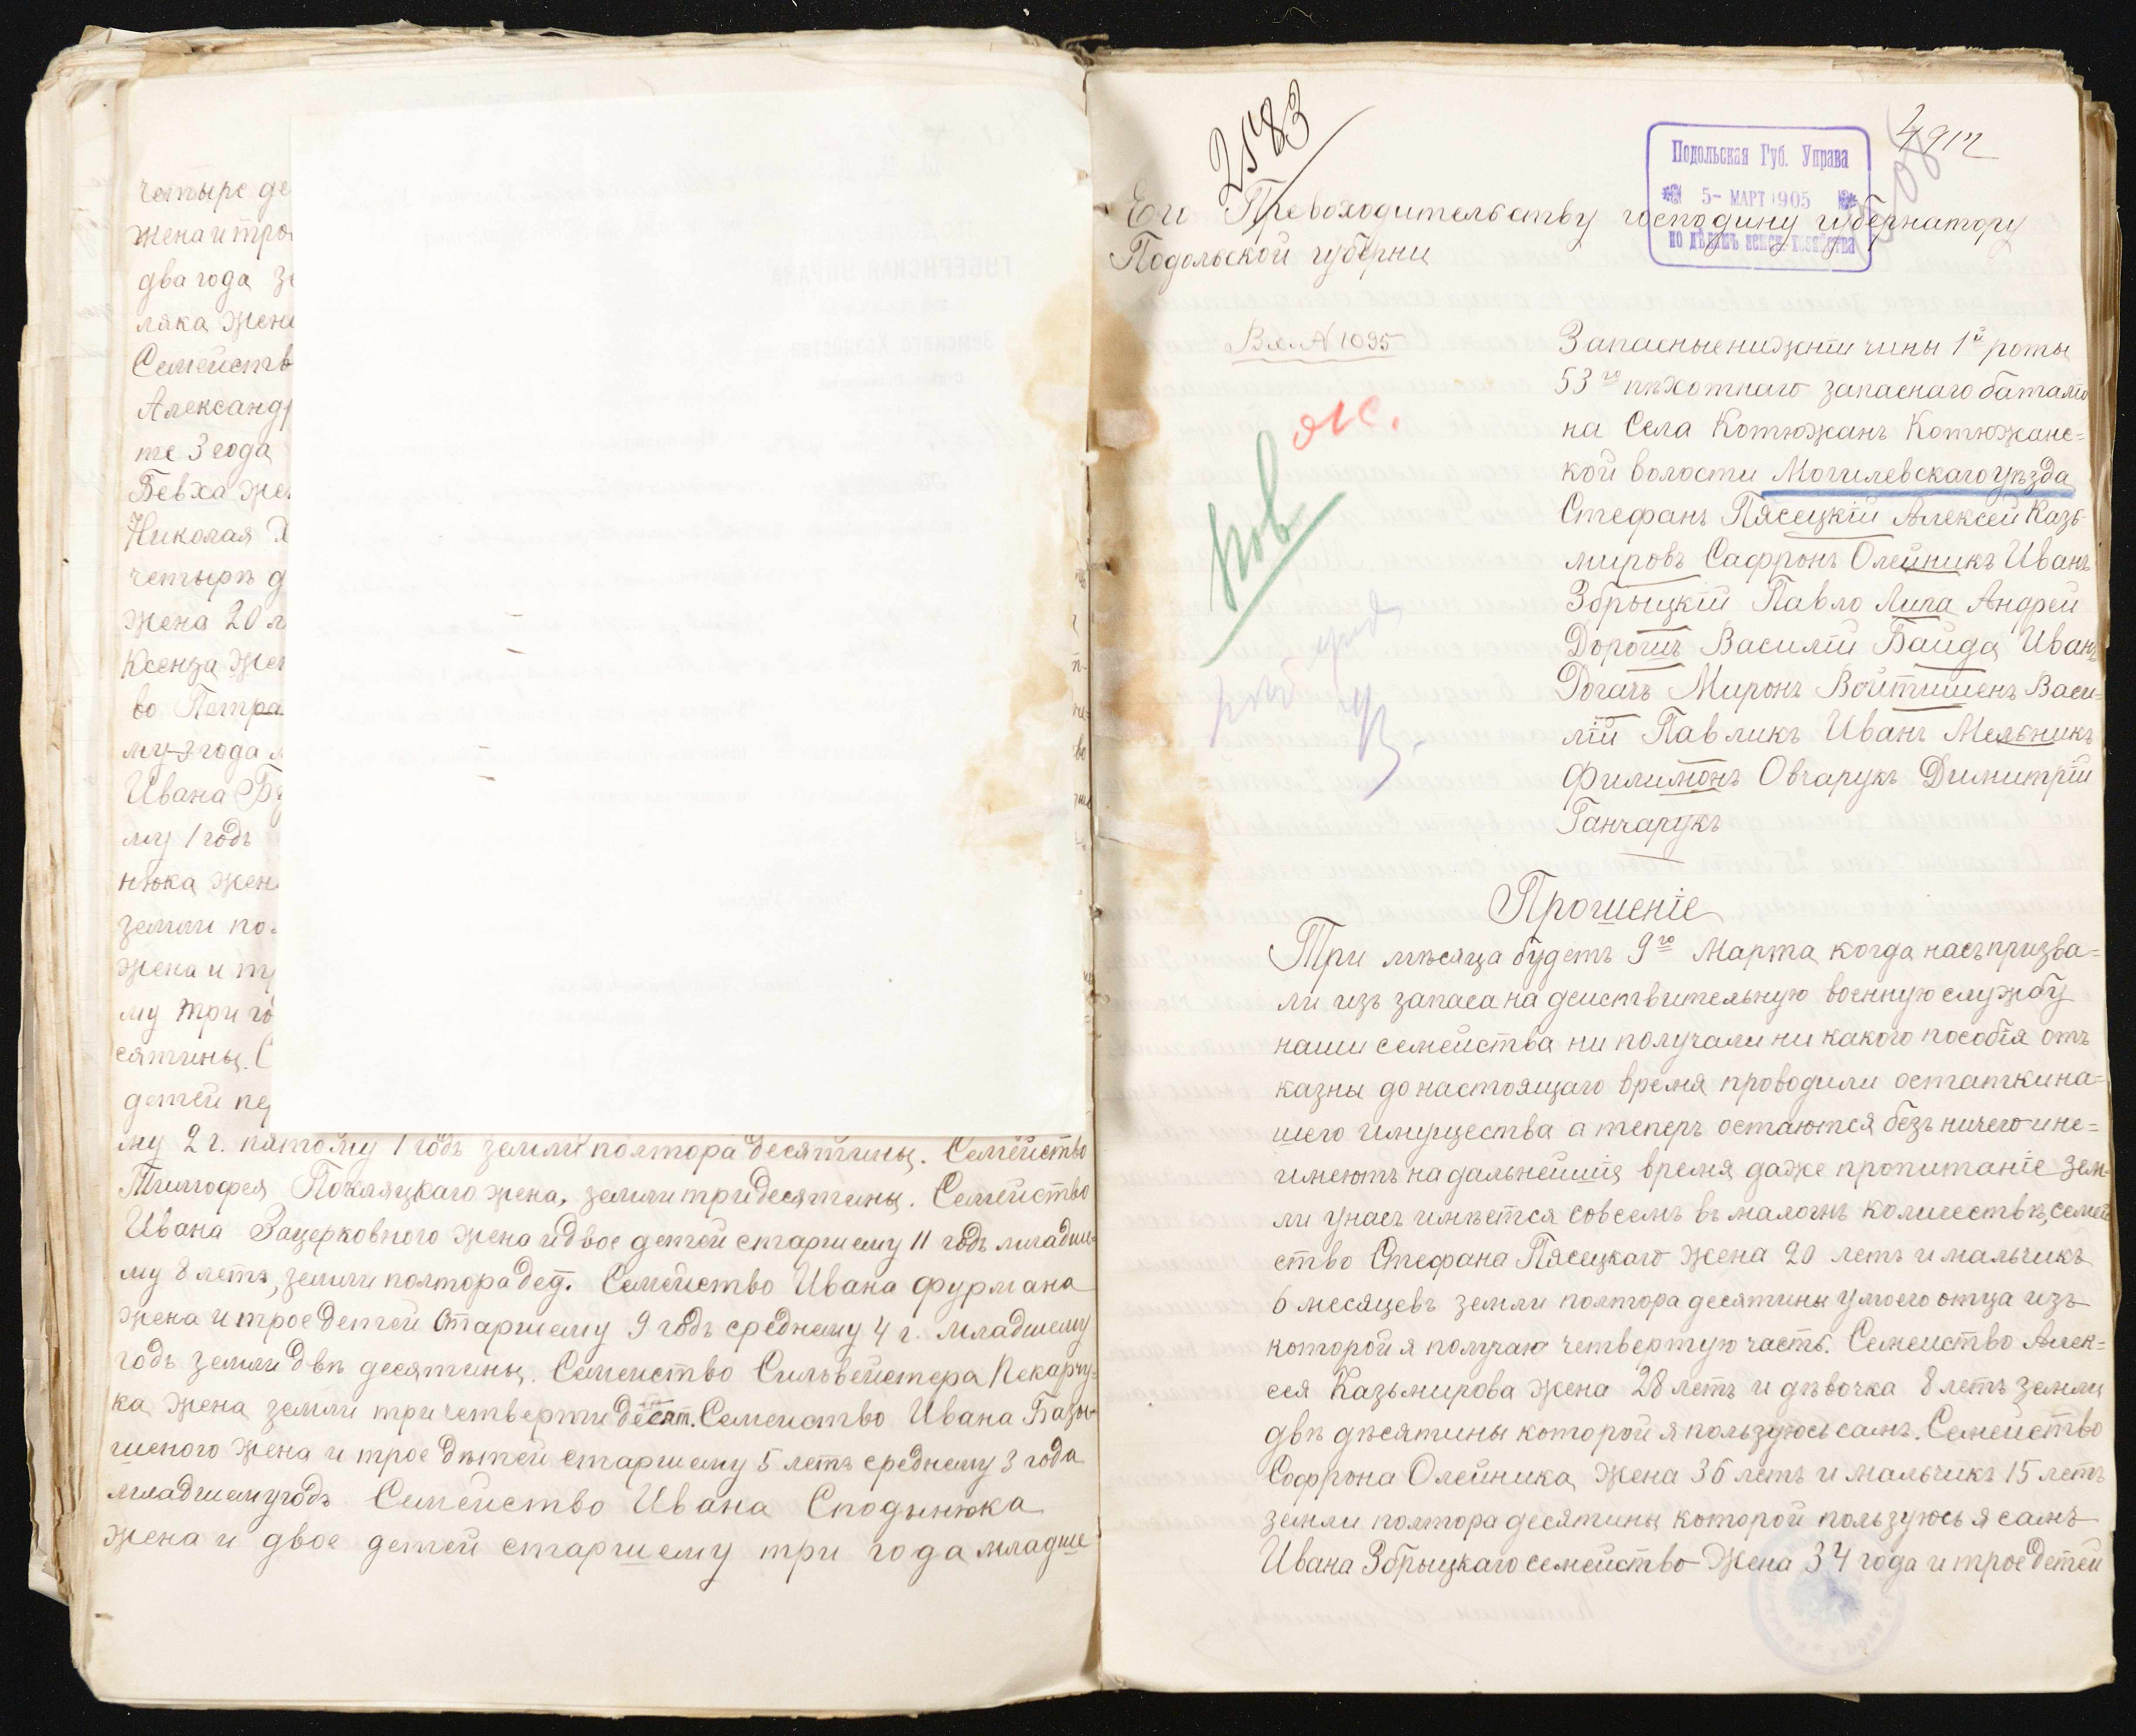 четыре де
жена и тро
два года зе
ляка жена
Семейств
Александр
те 3 года
Бевха жен
Николая Х
четырѣ д
жена 20 л
Ксенза жен
во Петра
му 3 года м
Ивана Бу
му 1 годъ
нюка жен
земли по
жена и тр
му три го
сятины. С
детей пе
му 2 г. пятому 1 годъ земли полтора десятины. Семейство
Тимофея Покляцкаго жена, земли три десятины. Семейство
Ивана Зацерковного жена и двое детей старшему 11 годъ младше-
му 8 летъ, земли полтора дес. Семейство Ивана Фурмана
жена и трое детей старшему 9 годъ среднему 4 г. младшему
годъ земли двѣ десятины. Семейство Сильвейстера Пекарчу-
ка жена земли три четверти десят. Семейство Ивана
шеного жена и трое дѣтей старшему 5 летъ среднему 3 года
младшему годъ Семейство Ивана Сподынюка
жена и двое детей старшему три года младше
2583
4912
Подольская Губ. Управа
5- МАРТ 1905
по дѣламъ земск. хозяйства
Его Превоходительству господину губернатору
Подольской губерни
Вх. № 1095
Запасные нижнии чины 1й роты
53го пѣхотнаго запаснаго баталіо
на Села Котюжанъ Котюжанс=
кой волости Могилевскаго уѣзда
Стефанъ Пясецкій Алексей Казь-
мировъ Сафронъ Олейникъ Иванъ
Збрыцкій Павло Липа Андрей
Дорошъ Василій Байда Иванъ
Догачъ Миронъ Войтишенъ Васи=
лій Павликъ Иванъ Мельникъ
Филимонъ Овчарукъ Димитрій
Ганчарукъ
Прошеніе
Три мѣсяца будетъ 9го Марта когда насъ призва=
ли изъ запаса на деиствительную военную службу
наши семейства ни получали ни какого пособія отъ
казны до настоящаго время проводили остатки на=
шего имущества а теперъ остаются безъ ничего и не=
имеютъ на дальнейшия время даже пропитаніе зем-
ли у насъ имѣется совсемъ въ маломъ количествѣ, семей
ство Стефана Пясецкаго жена 20 летъ и мальчикъ
6 месяцевъ земли полтора десятины у моего отца изъ
которой я получаю четвертую часть. Семейство Алек=
сея Казьмирова жена 28 летъ и дѣвочка 8 летъ земли
двѣ дѣсятины которой я пользуюсь самъ. Семейство
Софрона Олейника жена 36 летъ и мальчикъ 15 летъ
земли полтора десятины которой пользуюсь я самъ
Ивана Збрыцкаго семейство жена 34 года и трое детей